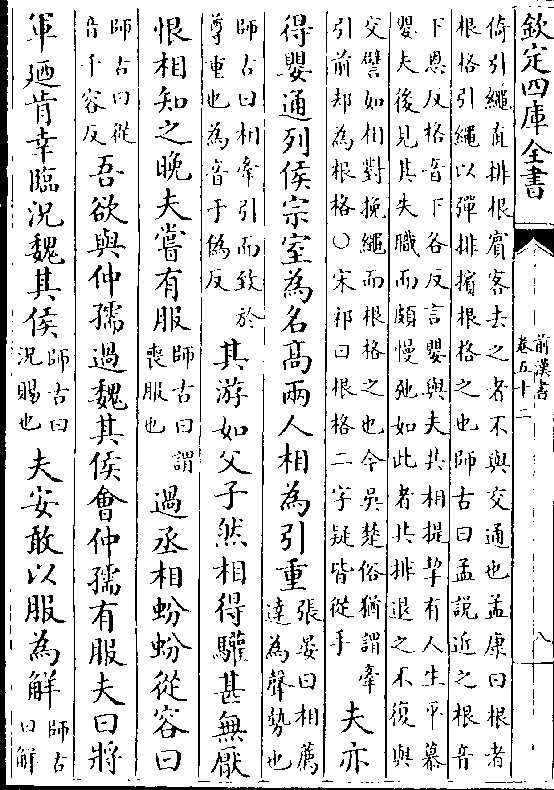 欽定四庫全書
前漢書
卷五十二
八
倚引繩直排根賓客去之者不與交通也孟康曰根者
根格引繩以彈排擯根格之也師古曰孟說近之根音
下恩反格音下各反言嬰與夫共相提挈有人生平慕
嬰夫後見其失職而頗慢弛如此者共排退之不復與
交譬如相對挽繩而根格之也今吳楚俗猶謂牽
引前却為根格○宋祁曰根格二字疑皆從手
夫亦
得嬰通列侯宗室為名髙兩人相為引重
張晏曰相薦
達為聲勢也
師古曰相牽引而致於
尊重也為音于偽反
其游如父子然相得驩甚無厭
恨相知之晚夫嘗有服
師古曰謂
喪服也
過丞相蚡蚡從容曰
師古曰從
音千容反
吾欲與仲孺過魏其侯會仲孺有服夫曰將
軍廼肯幸臨況魏其侯
師古曰
況賜也
夫安敢以服為解
師古
曰解